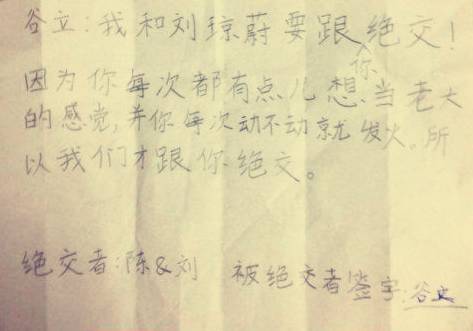 谷立:我和刘琼蔚要跟绝交!
你
因为你每次都有点儿想当老大
的感觉,并你每次动不动就发火。所
以我们才跟你绝交。
绝交者:陈&刘 被绝交者签字:谷立